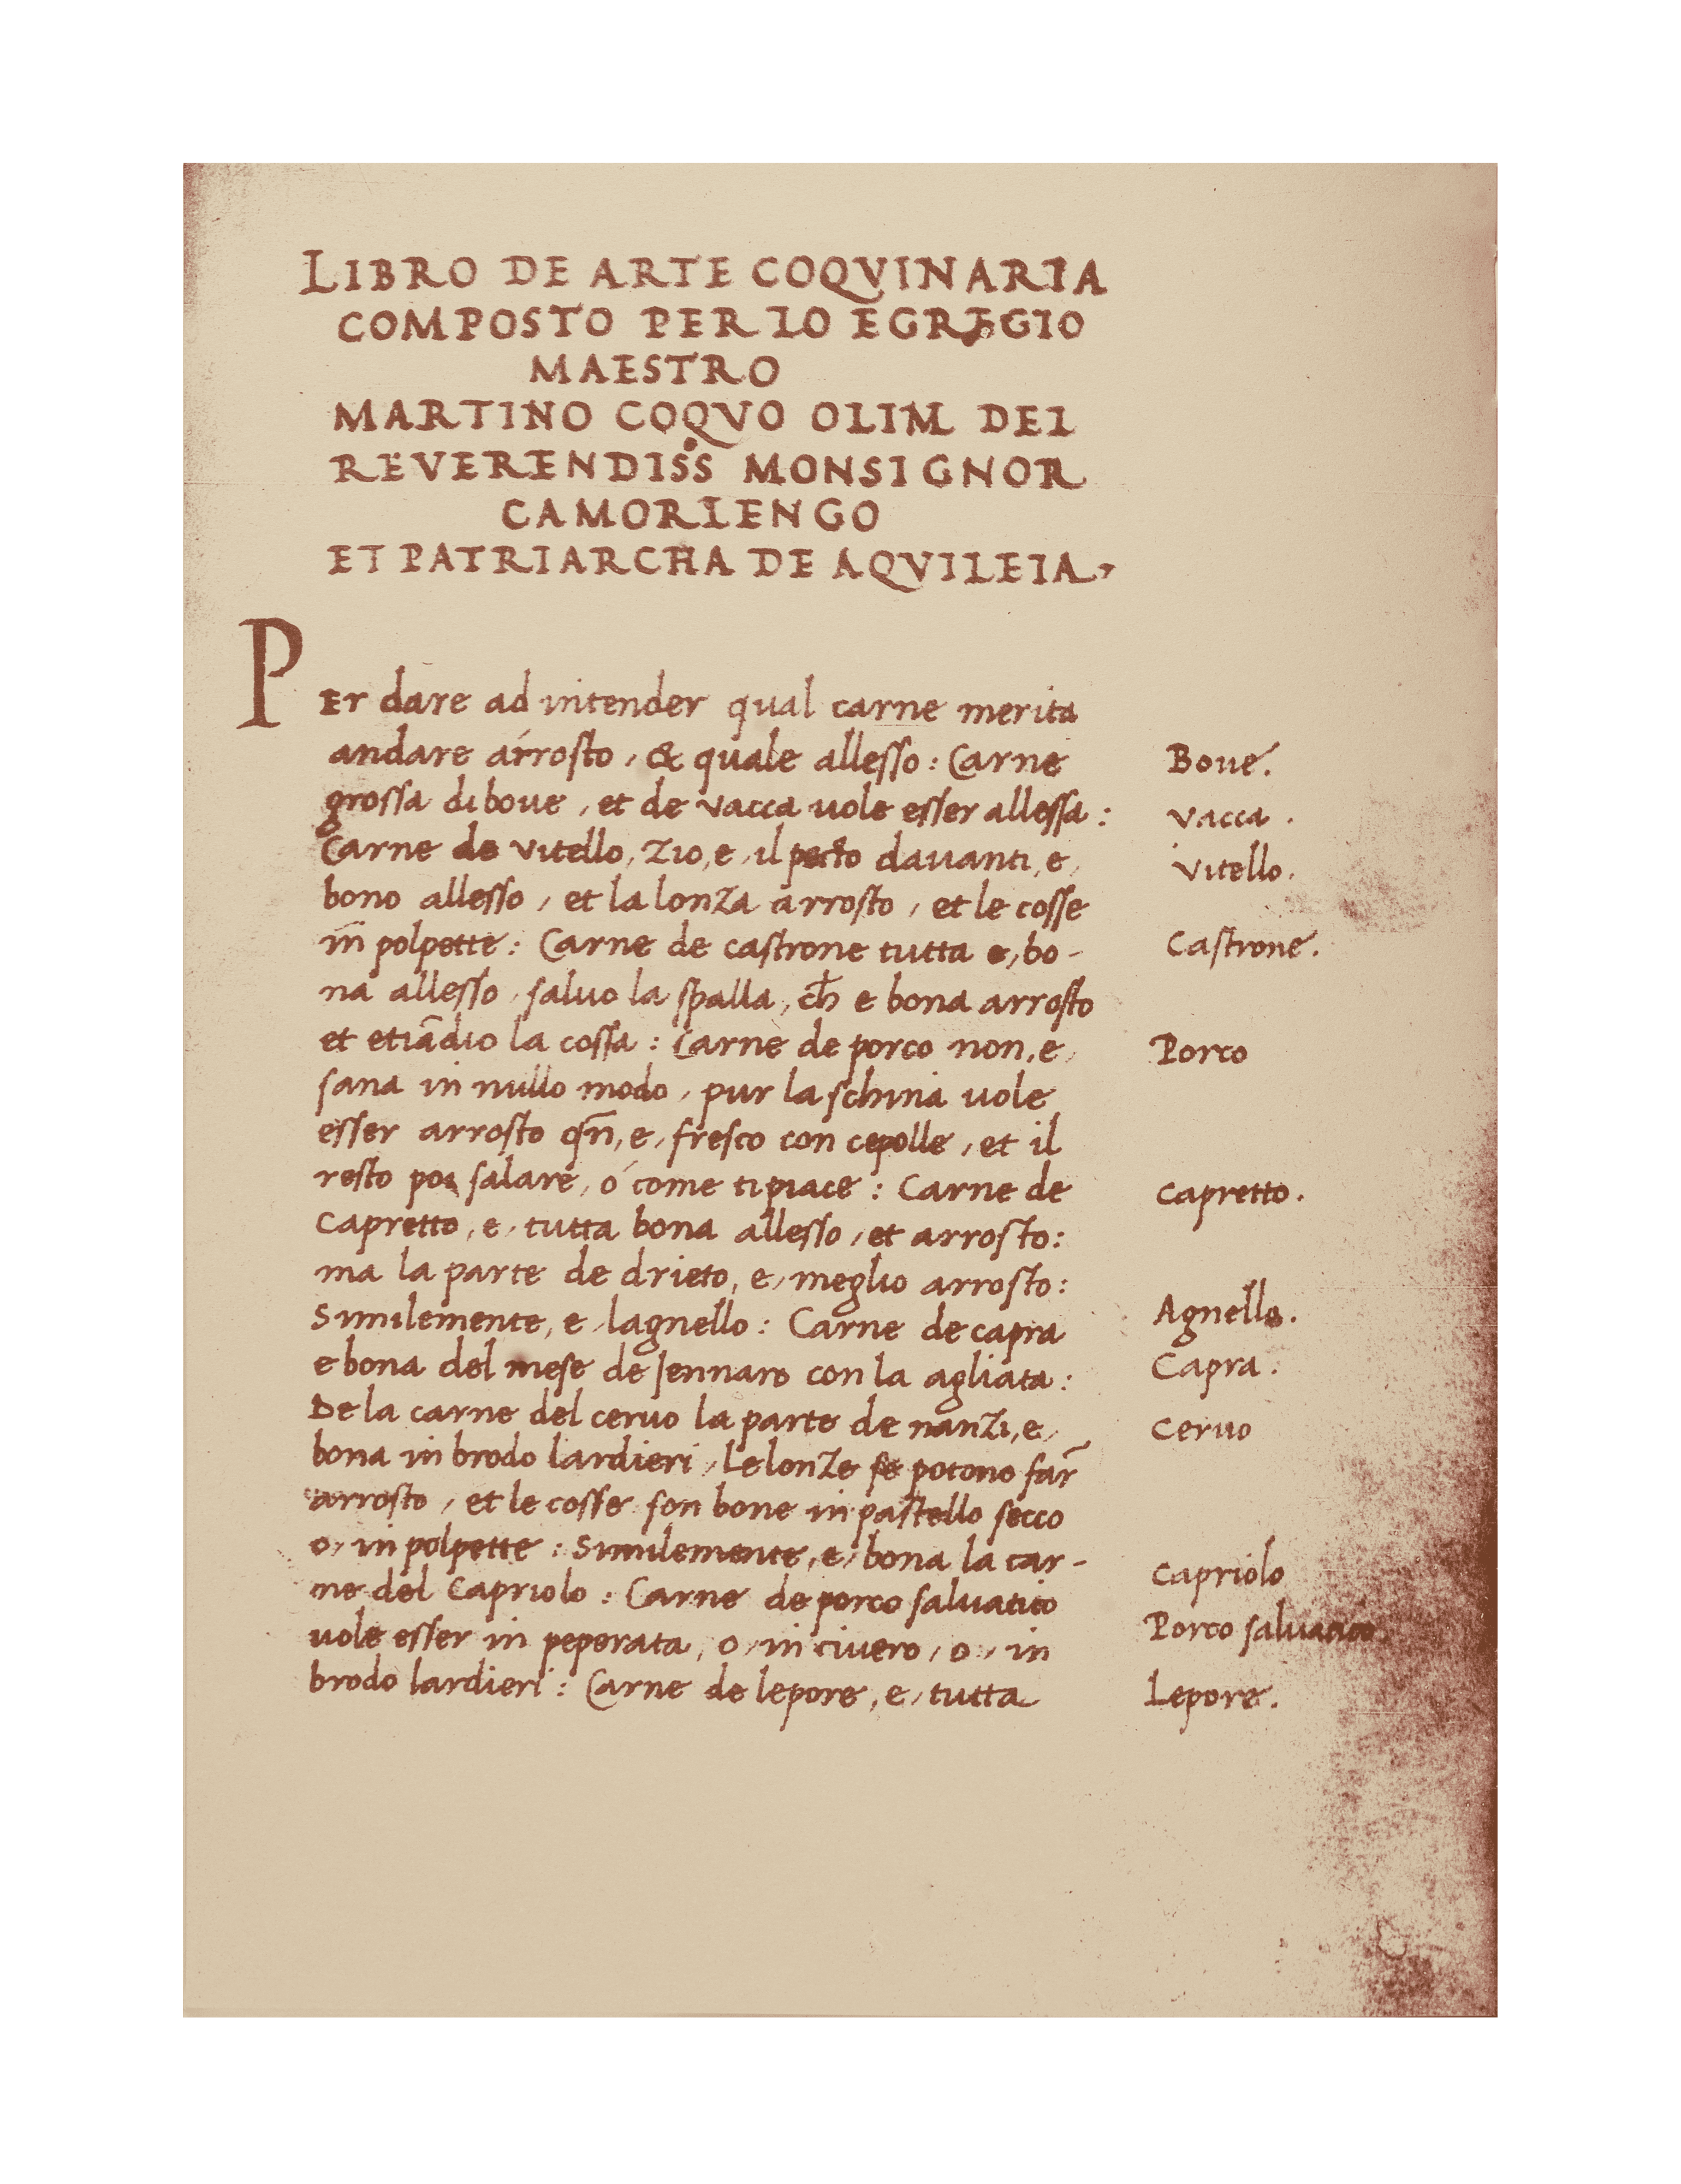 LIBRO DE ARTE COQVINARIA
COMPOSTO PER LO EGREGIO
MAESTRO
MARTINO COQVO OLIM DEL
REVERENDISS MONSIGNOR
CAMORLENGO
ET PATRIARCHA DE AQVILEIA,
PEr dare ad intender qual carne merita
andare arrosto, & quale allesso: Carne
grossa di boue, et de vacca uole esser allessa:
Carne de vitello, zio, e, il pecto dauanti, e,
bono allesso, et la lonza arrosto, et le cosse
in polpette: Carne de castrone tutta e, bo-
na allesso, saluo la spalla, ch̄ e bona arrosto
et etiādio la cossa: Carne de porco non, e,
sana in nullo modo, pur la schina uole
esser arrosto qn̄, e, fresco con cepolle, et il
resto poi salare, o come ti piace: Carne de
Capretto, e, tutta bona allesso, et arrosto:
ma la parte de drieto, e, meglio arrosto:
Similemente, e, lagnello: Carne de capra
e bona del mese de Jennaro con la agliata:
De la carne del ceruo la parte de nanzi, e,
bona in brodo lardieri, Le lonze se potono far̄
arrosto, et le cosse son bone in pastello secco
o, in polpette: Similemente, e, bona la car-
ne del Capriolo: Carne de porco saluatico
uole esser in peperata, o, in ciuero, o, in
brodo lardieri: Carne de lepore, e, tutta
Boue.
vacca.
vitello.
Castrone.
Porco
capretto.
Agnello.
Capra.
ceruo
capriolo
Porco saluatico.
Lepore.